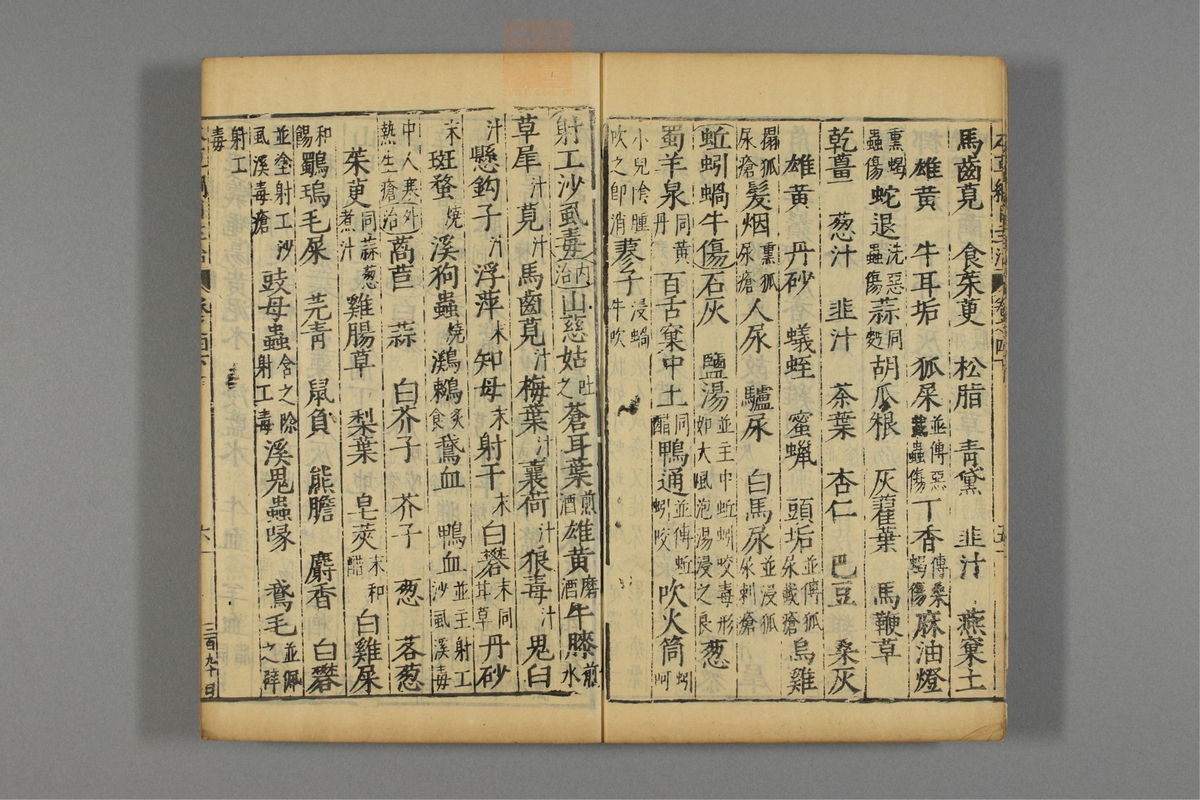 馬齒莧 食茱萸 松脂 青黛 韭汁 燕窠土
雄黃 牛耳垢 狐屎並傅惡蠚蟲傷 丁香傅桑蝎傷 麻油燈
熏蝎蟲傷 蛇退洗惡蟲傷 蒜同麪 胡瓜根 灰藋葉 馬鞭草
乾薑 葱汁 韭汁 茶葉 杏仁 巴豆 桑灰
雄黃 丹砂 蟻蛭 蜜蠟 頭垢並傅狐尿蠚瘡 烏雞
搨狐尿瘡 髮烟熏狐尿瘡 人尿 驢尿 白馬尿並浸狐尿刺瘡
蚯蚓蝸牛傷 石灰 鹽湯並主中蚯蚓咬毒形如大風泡湯浸之良 葱
蜀羊泉同黃丹 百舌窠中土同醋 鴨通並傅蚯蚓咬 吹火筒蚓呵
小兒陰腫吹之即消 蓼子浸蝸牛吹
射工沙虱毒 內治 山慈姑吐之 蒼耳葉煎酒 雄黃磨酒 牛膝煎水
草犀汁 莧汁 馬齒莧汁 梅葉汁 蘘荷汁 狼毒汁 鬼臼
汁 懸鈎子汁 浮萍末 知母末 射干末 白礬末同甘草 丹砂
末 斑蝥燒 溪狗蟲燒 鸂鶒炙食 鵞血 鴨血並主射工沙虱溪毒
中人寒熱生瘡 外治 萵苣 蒜 白芥子 芥子 葱 茖葱
茱萸同蒜葱煮汁 雞腸草 梨葉 皂莢末和醋 白雞屎
和餳 鸀瑦毛屎 芫青 鼠負 熊膽 麝香 白礬
並塗射工沙虱溪毒瘡 豉母蟲含之除射工毒 溪鬼蟲喙 鵞毛並佩之辟
射工毒